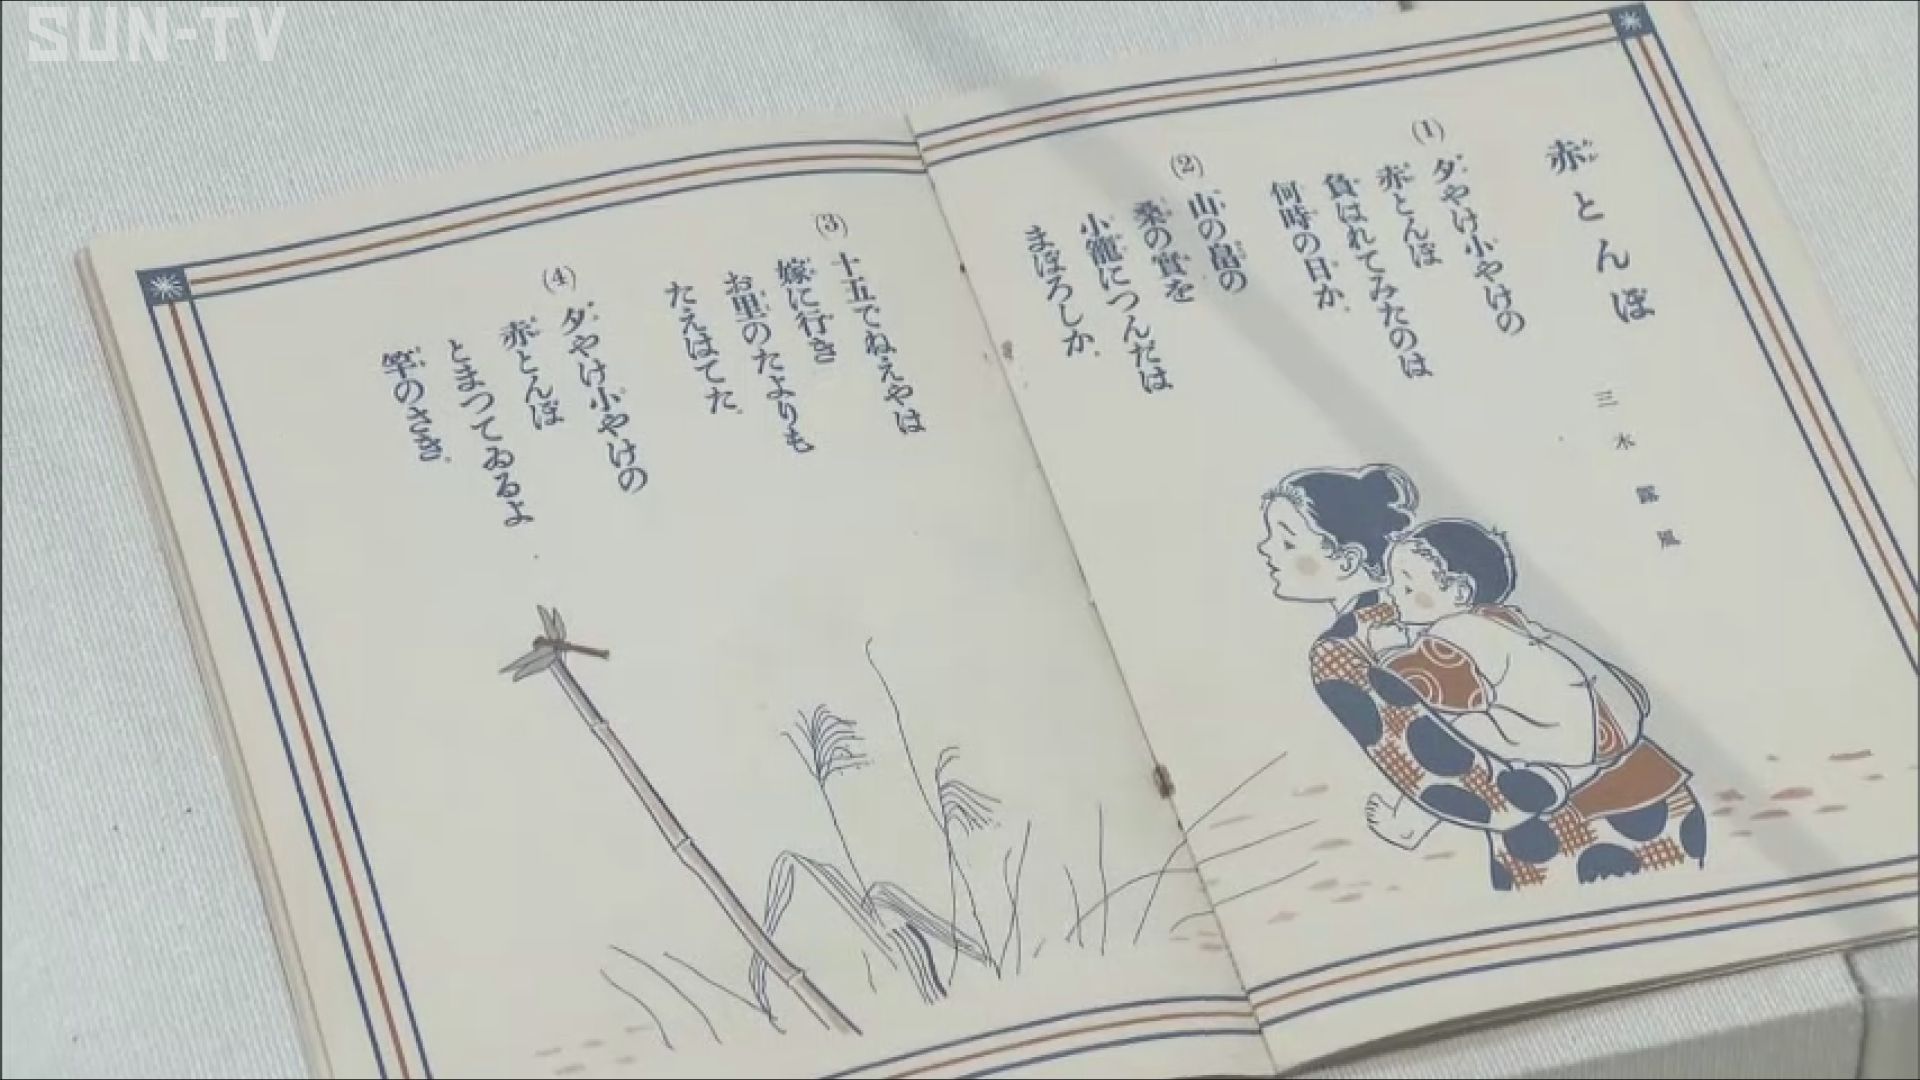 SUN-TV
赤とんぼ
三木露風
(1)
夕やけ小やけの
赤とんぼ
負はれてみたのは
何時の日か。
(2)
山の畠の
桑の實を
小籠につんだは
まぼろしか。
(3)
十五でねえやは
嫁に行き
お里のたよりも
たえはてた。
(4)
夕やけ小やけの
赤とんぼ
とまつてゐるよ
竿のさき。